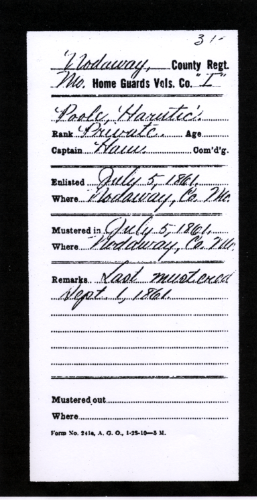 31-
Nodaway, County Regt.
Mo. Home Guards Vols. Co. "I"
Poole,
Rank Private. Age
Captain Ham. Com'd'g.
Enlisted July 5, 1861.
Where Nodaway, Co. Mo.
Mustered in July 5, 1861.
Where Nodaway, Co. Mo.
Remarks Last mustered
Sept. 1, 1861.
Mustered out
Where
Form No. 241a, A. G. O., 1-25-10—5 M.